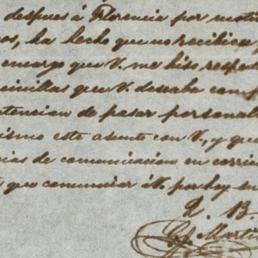 despues á Florencia por moti
os, ha hecho que no recibiera
encargo que V. me hizo respe
cinillas que V. deseaba com
tencion de pasar personal
ismo este asunto con V, y qu
cias de comunicacion en corri
que comunicar á V. por hoy su
Q. B.
Martin